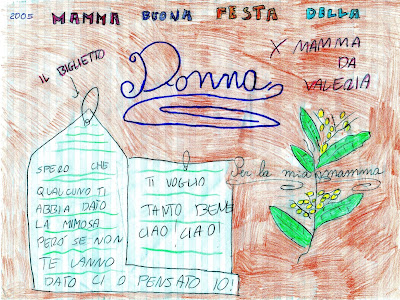 2005 MAMMA BUONA FESTA DELLA
Donna
X MAMMA
DA
VALERIA
IL BIGLIETTO
SPERO CHE
QUALCUNO TI
ABBIA DATO
LA MIMOSA
PERÒ SE NON
TE LANNO
DATO CI O PENSATO IO!
TI VOGLIO
TANTO BENE
CIAO! CIAO!
Per la mia mamma